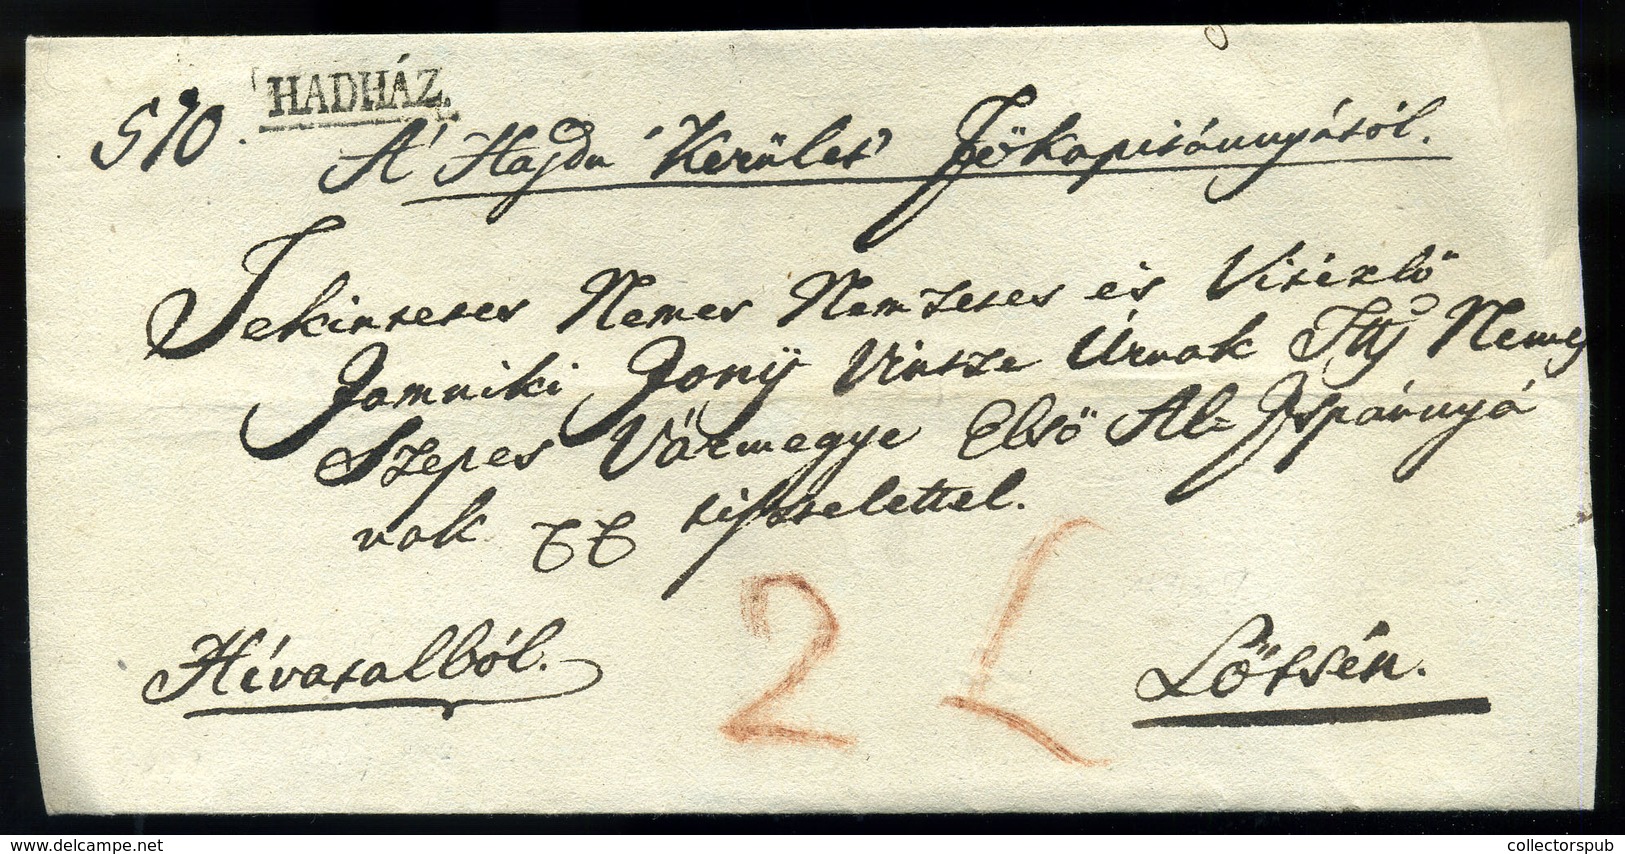 HADHÁZ.
510.
A' Hajdu Kerület Főkapitánnyától.
Tekintetes Nemes Nemzetes és Vitézlő
Jamniki Jony Vintze Úrnak Ttts Nemes
Szepes Vármegye Első Al-Jspánnyá
nak tisztelettel.
2 L
Hívatalból.
Lőtsén.
collectorspub